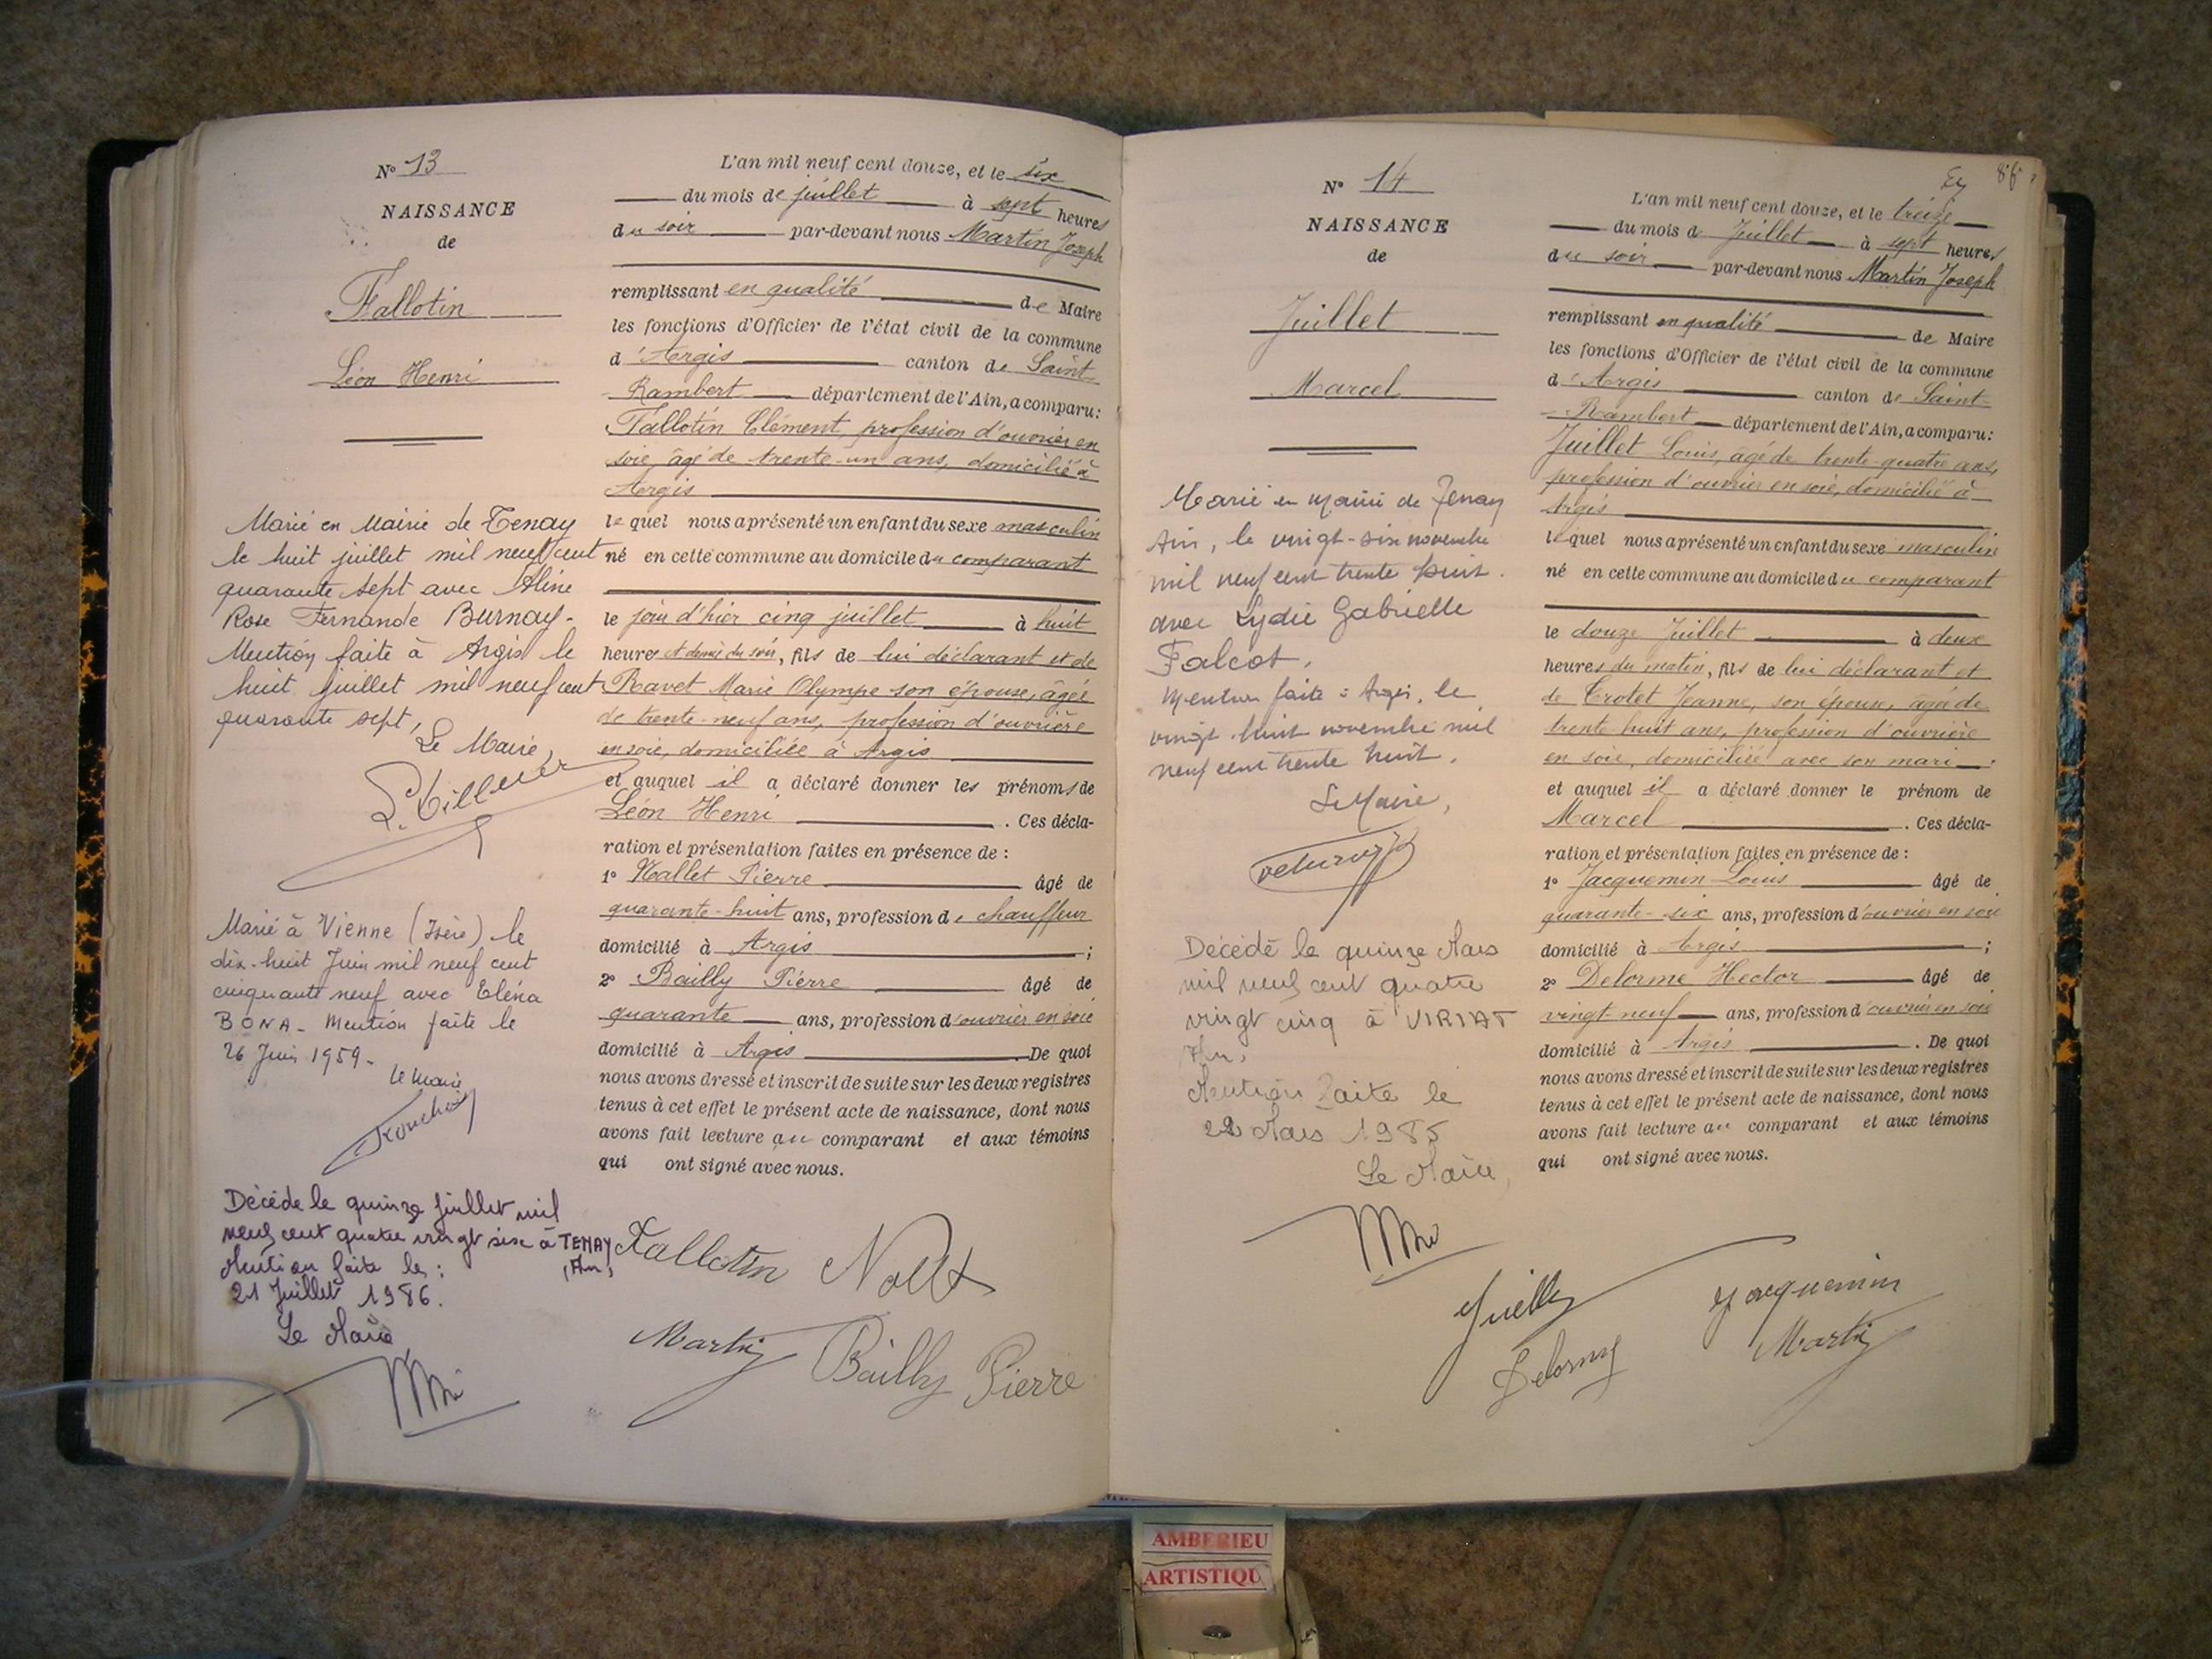 N° 13
NAISSANCE
de
Fallotin
Léon Henri
Marié en Mairie de Tenay
le huit juillet mil neuf cent
quarante sept avec Aline
Rose Fernande Burnay-
Mention faite à Argis le
huit juillet mil neuf cent
quarante sept,
Le Maire,
Marié à Vienne (Isère) le
dix-huit Juin mil neuf cent
cinquante neuf avec Eléna
BONA - Mention faite le
26 Juin 1959 -
Le Maire
Décédé le quinze Juillet mil
neuf cent quatre vingt six à TENAY
(Ain)
Mention faite le :
21 Juillet 1986.
Le Maire
L'an mil neuf cent douze, et le six
du mois de juillet à sept heures
du soir par-devant nous Martin Joseph
remplissant en qualité de Maire
les fonctions d'Officier de l'état civil de la commune
d'Argis canton de Saint-
Rambert département de l'Ain, a comparu :
Fallotin Clément, profession d'ouvrier en
soie, âgé de trente-un ans, domicilié à
Argis
le quel nous a présenté un enfant du sexe masculin
né en cette commune au domicile du comparant
le jour d'hier cinq juillet à huit
heures et demie du soir, fils de lui déclarant et de
Ravet Marie Olympe son épouse, âgée
de trente-neuf ans, profession d'ouvrière
en soie, domiciliée à Argis
et auquel il a déclaré donner les prénoms de
Léon Henri . Ces décla-
ration et présentation faites en présence de :
1° Nallet Pierre âgé de
quarante-huit ans, profession de chauffeur
domicilié à Argis ;
2° Bailly Pierre âgé de
quarante ans, profession d'ouvrier en soie
domicilié à Argis De quoi
nous avons dressé et inscrit de suite sur les deux registres
tenus à cet effet le présent acte de naissance, dont nous
avons fait lecture au comparant et aux témoins
qui ont signé avec nous.
Fallotin
Martin Bailly Pierre
N° 14
NAISSANCE
de
Juillet
Marcel
Marié en Mairie de Tenay
Ain, le vingt-six novembre
mil neuf cent trente huit.
avec Lydie Gabrielle
Falcot.
Mention faite à Argis, le
vingt-huit novembre mil
neuf cent trente huit.
Le Maire,
Décédé le quinze Mars
mil neuf cent quatre
vingt cinq à VIRIAT
Ain,
Mention faite le
22 Mars 1985
Le Maire,
86
L'an mil neuf cent douze, et le treize
du mois d Juillet à sept heures
du soir par-devant nous Martin Joseph
remplissant en qualité de Maire
les fonctions d'Officier de l'état civil de la commune
d'Argis canton de Saint-
Rambert département de l'Ain, a comparu :
Juillet Louis, âgé de trente-quatre ans,
profession d'ouvrier en soie, domicilié à
Argis
lequel nous a présenté un enfant du sexe masculin
né en cette commune au domicile du comparant
le douze Juillet à deux
heures du matin, fils de lui déclarant et
de Crotet Jeanne, son épouse, âgée de
trente huit ans, profession d'ouvrière
en soie, domiciliée avec son mari .
et auquel il a déclaré donner le prénom de
Marcel . Ces décla-
ration et présentation faites en présence de :
1° Jacquemin Louis âgé de
quarante-six ans, profession d'ouvrier en soie
domicilié à Argis ;
2° Delorme Hector âgé de
vingt-neuf ans, profession d'ouvrier en soie
domicilié à Argis . De quoi
nous avons dressé et inscrit de suite sur les deux registres
tenus à cet effet le présent acte de naissance, dont nous
avons fait lecture au comparant et aux témoins
qui ont signé avec nous.
Jacquemin
Delorme Martin
AMBERIEU
ARTISTIQU